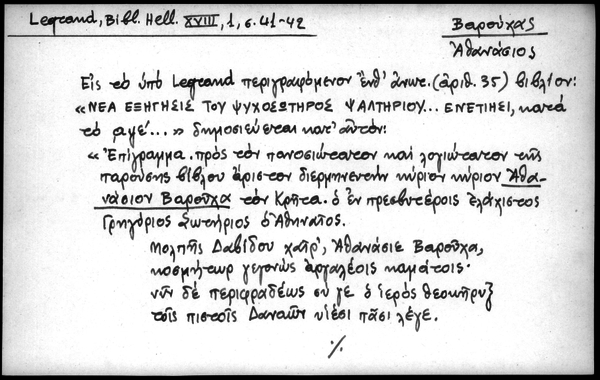 Legrand, Bibl. Hell. XVIII, 1, σ. 41-42
Βαρούχας
Ἀθανάσιος
Εἰς τὸ ὑπὸ Legrand περιγραφόμενον ἔνθ' ἀνωτ. (ἀριθ. 35) βιβλίον:
«ΝΕΑ ΕΞΗΓΗΣΙΣ ΤΟΥ ΨΥΧΟΣΩΤΗΡΟΣ ΨΑΛΤΗΡΙΟΥ... ΕΝΕΤΙΗΣΙ, κατὰ
τὸ αψέ...» δημοσιεύεται κατ' αὐτόν:
«Ἐπίγραμμα. πρὸς τὸν πανοσιώτατον καὶ λογιώτατον τῆς
παρούσης βίβλου ἄριστον διερμηνευτὴν κύριον κύριον Ἀθα-
νάσιον Βαροῦχα τὸν Κρῆτα. ὁ ἐν πρεσβυτέροις ἐλάχιστος
Γρηγόριος Σωτήριος ὁ Ἀθηναῖος.
Μολπῆς Δαβίδου χαῖρ', Ἀθανάσιε Βαροῦχα,
κοσμήτωρ γεγονὼς ἀργαλέοις καμάτοις·
νῦν δὲ περιφραδέως σύ γε ὁ ἱερὸς θεοκῆρυξ
τοῖς πιστοῖς Δαναῶν υἱέσι πᾶσι λέγε.
%